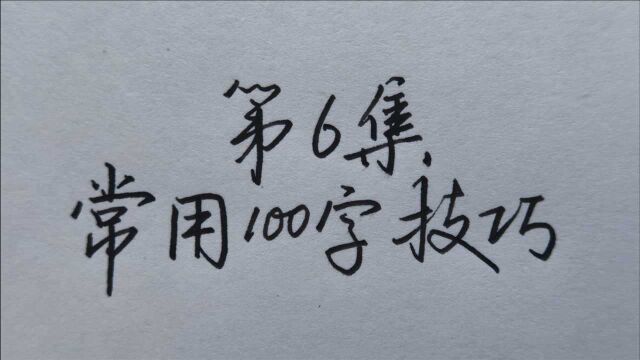 第6集
常用100字技巧